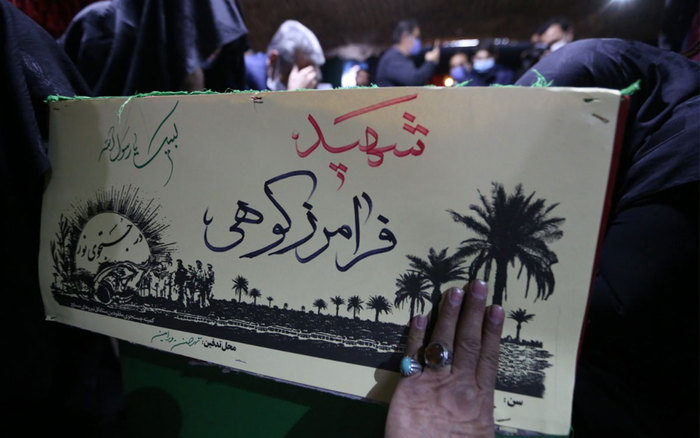 لبیک یا رسول الله
شهید
فرامرز کوهی
در جستجوی نور
محل تدفین: تهران - ورامین
سن: